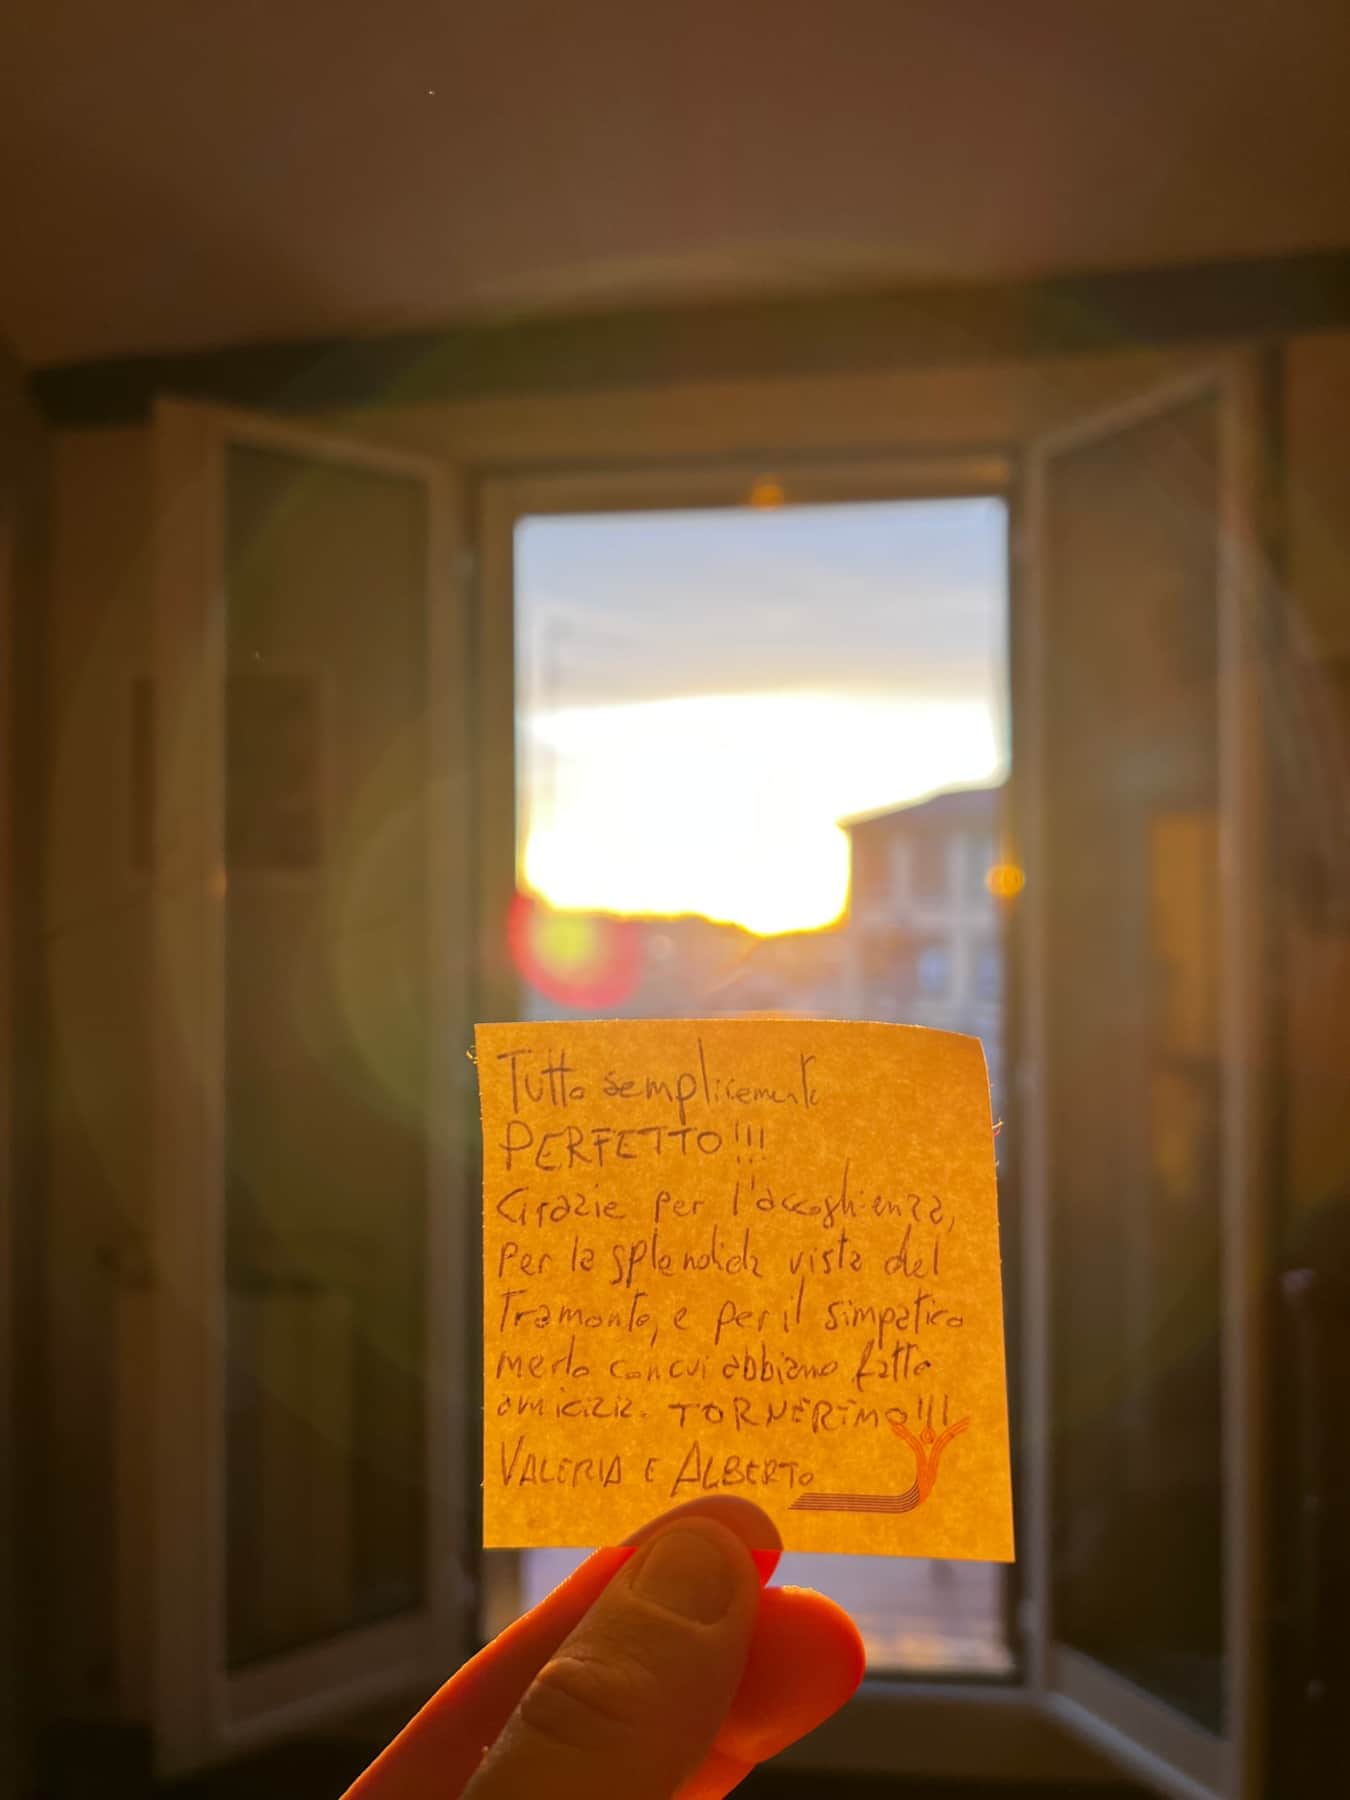 Tutto semplicemente
PERFETTO!!!
Grazie per l'accoglienza,
per la splendida vista del
Tramonto, e per il simpatico
merlo con cui abbiamo fatto
amicizia. TORNEREMO!!!
VALERIA E ALBERTO